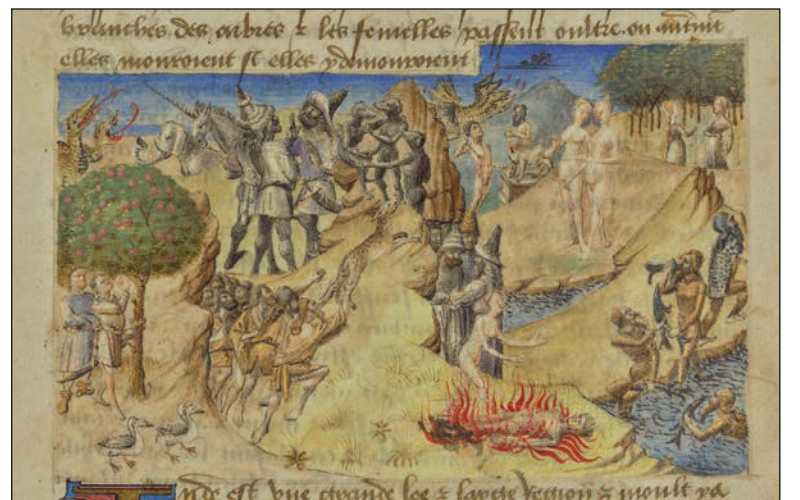 branches des arbres & les femelles passent oultre. ou
elles mouroient se elles y demouroient
Inde est vne grande lee & large region & moult